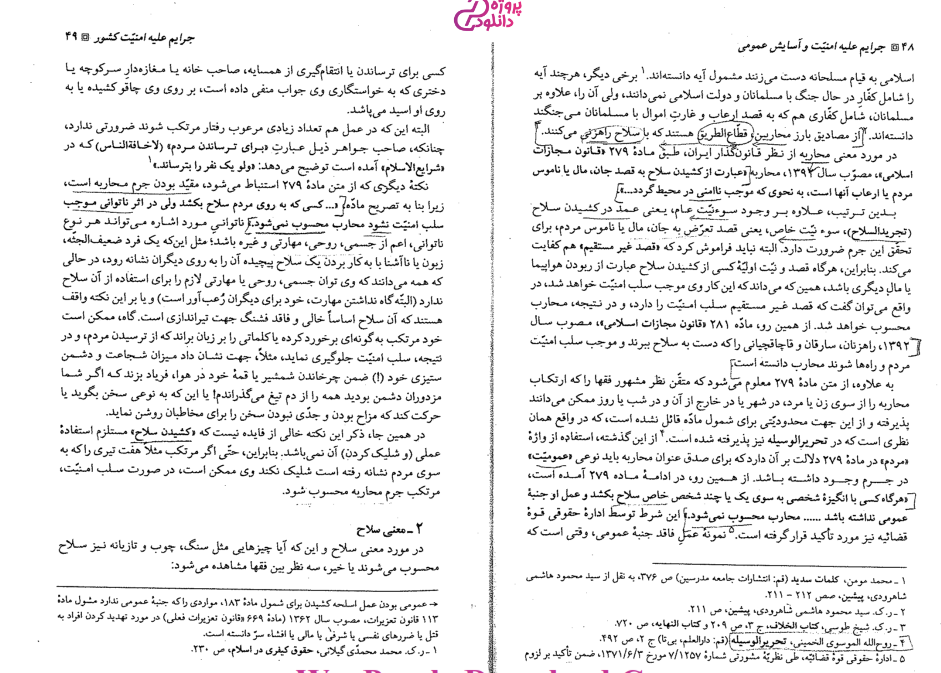 پروژه
دانلود
۴۸ جرایم علیه امنیّت و آسایش عمومی
اسلامی به قیام مسلحانه دست می‌زنند مشمول آیه دانسته‌اند.۱ برخی دیگر، هرچند آیه
را شامل کفّار در حال جنگ با مسلمانان و دولت اسلامی نمی‌دانند، ولی آن را، علاوه بر
مسلمانان، شامل کفّاری هم که به قصد ارعاب و غارتِ اموال با مسلمانان می‌جنگند
دانسته‌اند.۲ از مصادیق بارز محاربین، قطّاع‌الطریق هستند که با سلاح راهزنی می‌کنند.۳
در مورد معنی محاربه از نظر قانون‌گذار ایران، طبق مادّهٔ ۲۷۹ «قانون مجازات
اسلامی»، مصوّب سال ۱۳۹۲، محاربه «عبارت از کشیدن سلاح به قصد جان، مال یا ناموس
مردم یا ارعاب آنها است، به نحوی که موجب ناامنی در محیط گردد...».
بدین ترتیب، علاوه بر وجود سوءنیّت عام، یعنی عمد در کشیدن سلاح
(تجریدالسلاح)، سوء نیّت خاص، یعنی قصد تعرّض به جان، مال یا ناموس مردم، برای
تحقق این جرم ضرورت دارد. البته نباید فراموش کرد که «قصد غیر مستقیم» هم کفایت
می‌کند. بنابراین، هرگاه قصد و نیّت اولیّهٔ کسی از کشیدن سلاح عبارت از ربودن هواپیما
یا مال دیگری باشد، همین که می‌داند که این کار وی موجب سلب امنیّت خواهد شد، در
واقع می‌توان گفت که قصد غیر مستقیم سلب امنیّت را دارد، و در نتیجه، محارب
محسوب خواهد شد. از همین رو، مادّه ۲۸۱ «قانون مجازات اسلامی»، مصوب سال
۱۳۹۲، راهزنان، سارقان و قاچاقچیانی را که دست به سلاح ببرند و موجب سلب امنیّت
مردم و راه‌ها شوند محارب دانسته است.
به علاوه، از متن مادّهٔ ۲۷۹ معلوم می‌شود که مقنّن نظر مشهور فقها را که ارتکاب
محاربه را از سوی زن یا مرد، در شهر یا در خارج از آن و در شب یا روز ممکن می‌دانند
پذیرفته و از این جهت محدودیّتی برای شمول مادّه قائل نشده است، که در واقع همان
نظری است که در تحریرالوسیله نیز پذیرفته شده است.۴ از این گذشته، استفاده از واژهٔ
«مردم» در مادّهٔ ۲۷۹ دلالت بر آن دارد که برای صدق عنوان محاربه باید نوعی «عمومیّت»
در جرم وجود داشته باشد. از همین رو، در ادامهٔ مادّه ۲۷۹ آمده است،
«هرگاه کسی با انگیزهٔ شخصی به سوی یک یا چند شخص خاص سلاح بکشد و عمل او جنبهٔ
عمومی نداشته باشد ...... محارب محسوب نمی‌شود.» این شرط توسط ادارهٔ حقوقی قوهٔ
قضائیه نیز مورد تأکید قرار گرفته است.۵ نمونهٔ عملِ فاقد جنبهٔ عمومی، وقتی است که
۱ ـ محمد مومن، کلمات سدید (قم: انتشارات جامعه مدرسین) ص ۳۷۶، به نقل از سید محمود هاشمی
شاهرودی، پیشین، صص ۲۱۲ – ۲۱۱.
۲ ـ ر.ک. سید محمود هاشمی شاهرودی، پیشین، ص ۲۱۱.
۳ ـ ر.ک. شیخ طوسی، کتاب الخلاف، ج ۳، ص ۲۰۹ و کتاب النهایه، ص ۷۲۰.
۴ ـ روح‌الله الموسوی الخمینی، تحریرالوسیله (قم: دارالعلم، بی‌تا) ج ۲، ص ۴۹۲.
۵ ـ ادارهٔ حقوقی قوهٔ قضائیّه، طی نظریّهٔ مشورتی شمارهٔ ۷/۱۲۵۷ مورخ ۱۳۷۱/۶/۳، ضمن تأکید بر لزوم
جرایم علیه امنیّت کشور ۴۹
کسی برای ترساندن یا انتقام‌گیری از همسایه، صاحب خانه یا مغازه‌دارِ سرکوچه یا
دختری که به خواستگاری وی جواب منفی داده است، بر روی وی چاقو کشیده یا به
روی او اسید می‌پاشد.
البته این که در عمل هم تعداد زیادی مرعوب رفتار مرتکب شوند ضرورتی ندارد،
چنانکه، صاحب جواهر ذیل عبارتِ «برای ترساندن مردم» (لاخافةالناس) که در
«شرایع‌الاسلام» آمده است توضیح می‌دهد: «ولو یک نفر را بترساند.»۱
نکتهٔ دیگری که از متن مادهٔ ۲۷۹ استنباط می‌شود، مقیّد بودن جرم محاربه است،
زیرا بنا به تصریح مادّه، «... کسی که به روی مردم سلاح بکشد ولی در اثر ناتوانی موجب
سلب امنیّت نشود محارب محسوب نمی‌شود.» ناتوانیِ مورد اشاره می‌تواند هر نوع
ناتوانی، اعم از جسمی، روحی، مهارتی و غیره باشد؛ مثل این‌که یک فرد ضعیف‌الجثّه،
زبون یا ناآشنا با به‌کار بردن یک سلاح پیچیده آن را به روی دیگران نشانه رود، در حالی
که همه می‌دانند که وی توان جسمی، روحی یا مهارتی لازم را برای استفاده از آن سلاح
ندارد (البتّه گاه نداشتن مهارت، خود برای دیگران رُعب‌آور است) و یا بر این نکته واقف
هستند که آن سلاح اساساً خالی و فاقد فشنگ جهت تیراندازی است. گاه، ممکن است
خود مرتکب به گونه‌ای برخورد کرده یا کلماتی را بر زبان براند که از ترسیدن مردم، و در
نتیجه، سلب امنیّت جلوگیری نماید، مثلاً، جهت نشان داد میزان شجاعت و دشمن
ستیزی خود (!) ضمن چرخاندن شمشیر یا قمهٔ خود در هوا، فریاد بزند که اگر شما
مزدوران دشمن بودید همه را از دم تیغ می‌گذراندم! یا این که به نوعی سخن بگوید یا
حرکت کند که مزاح بودن و جدّی نبودن سخن را برای مخاطبان روشن نماید.
در همین جا، ذکر این نکته خالی از فایده نیست که «کشیدن سلاح» مستلزم استفادهٔ
عملی (و شلیک کردن) آن نمی‌باشد. بنابراین، حتّی اگر مرتکب مثلاً هفت تیری را که به
سوی مردم نشانه رفته است شلیک نکند وی ممکن است، در صورت سلب امنیّت،
مرتکب جرم محاربه محسوب شود.
۲ ـ معنی سلاح
در مورد معنی سلاح و این که آیا چیزهایی مثل سنگ، چوب و تازیانه نیز سلاح
محسوب می‌شوند یا خیر، سه نظر بین فقها مشاهده می‌شود:
→ عمومی بودن عمل اسلحه کشیدن برای شمول مادّهٔ ۱۸۳، مواردی را که جنبهٔ عمومی ندارد مشول مادهٔ
۱۱۳ قانون تعزیرات، مصوب سال ۱۳۶۲ (مادهٔ ۶۶۹ «قانون تعزیرات فعلی) در مورد تهدید کردن افراد به
قتل یا ضررهای نفسی یا شرفی یا مالی یا افشاء سرّ دانسته است.
۱ ـ ر.ک. محمد محمدی گیلانی، حقوق کیفری در اسلام، ص ۲۳۰.